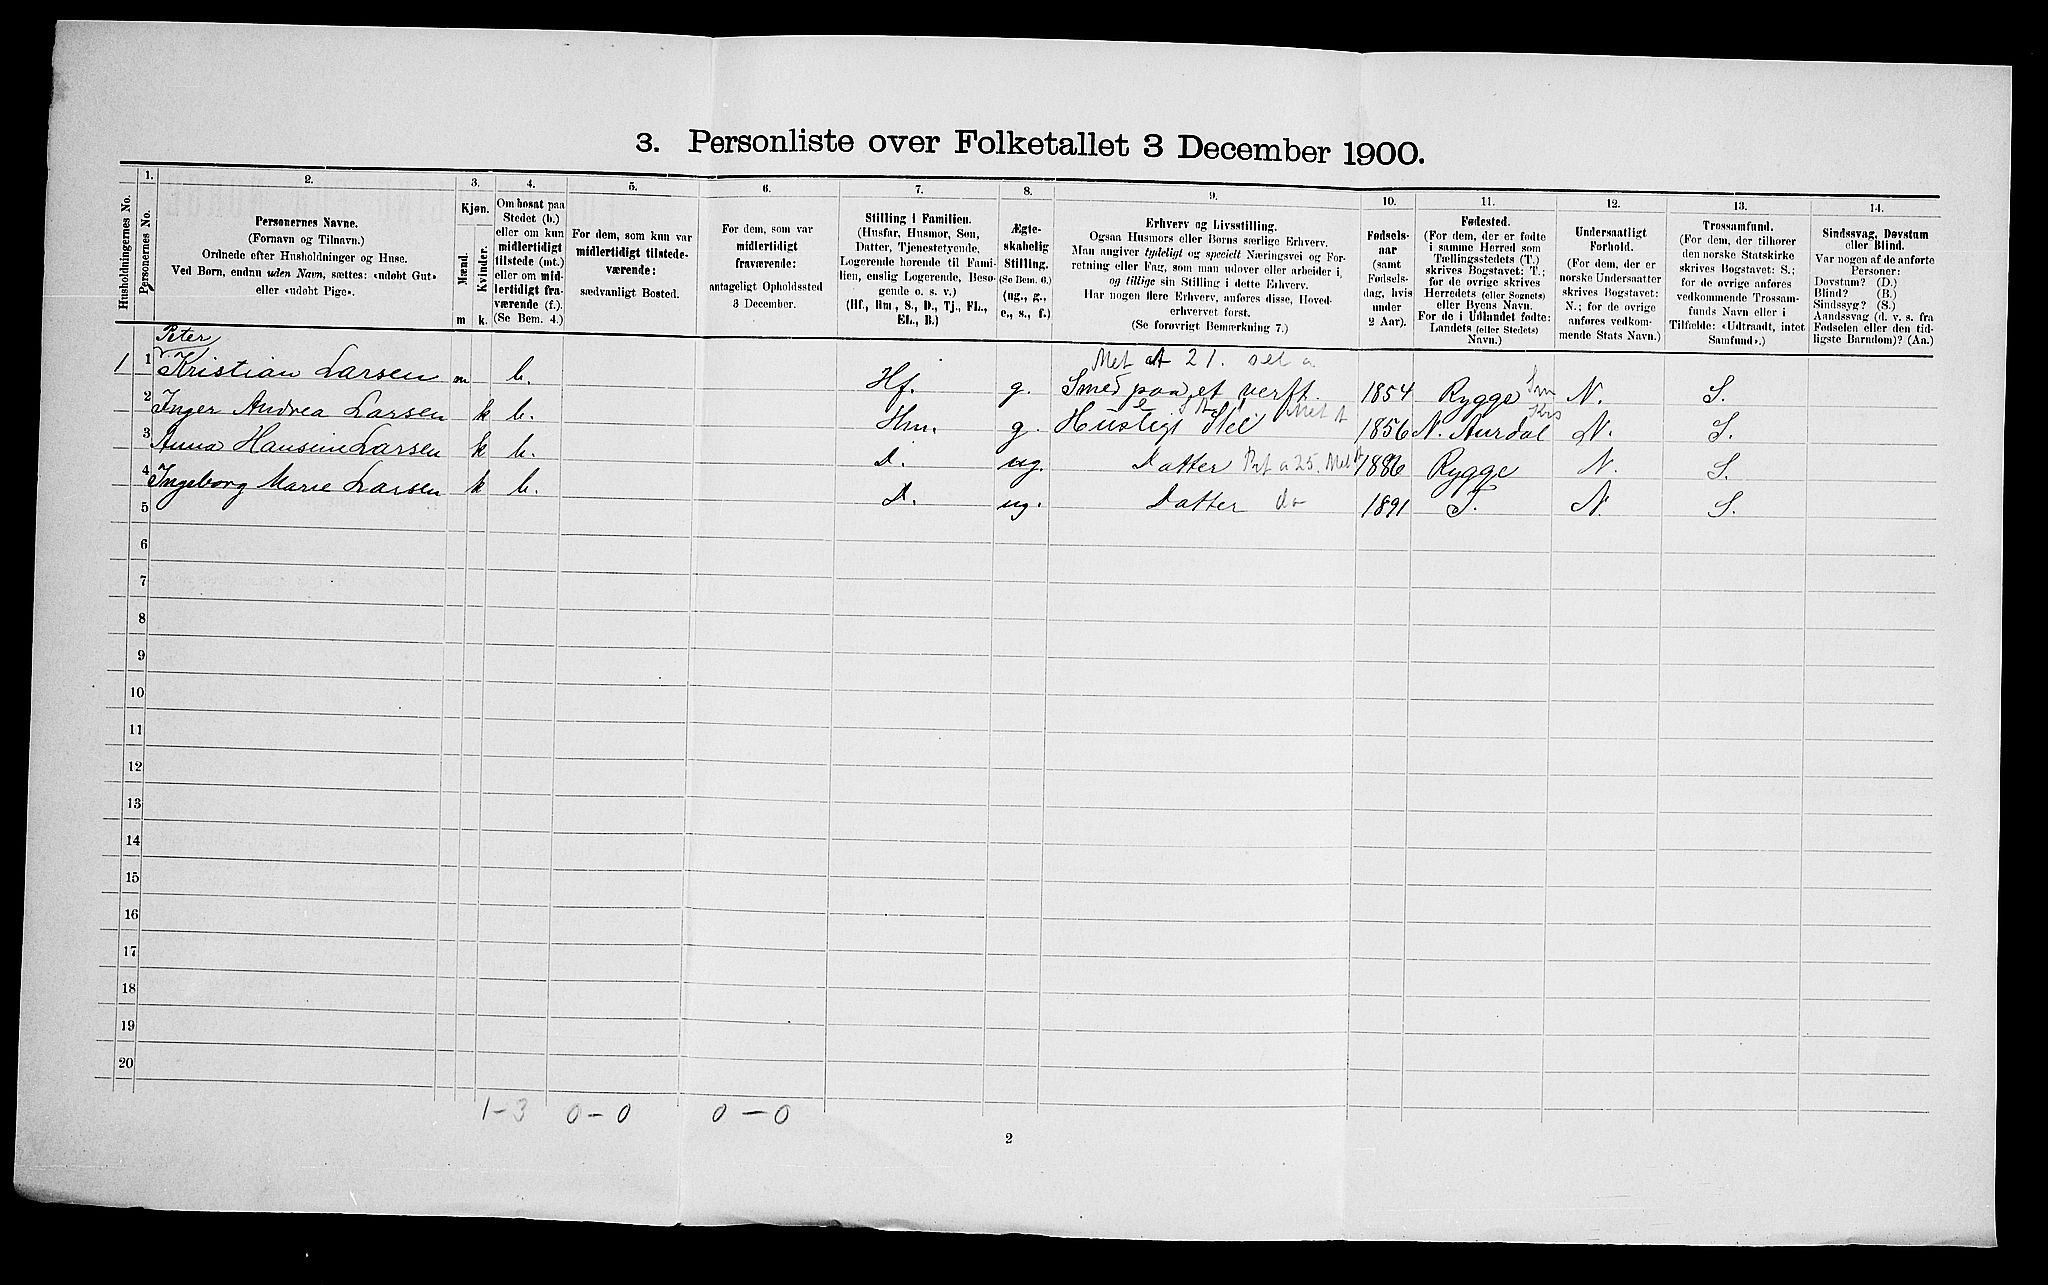 3. Personliste over Folketallet 3 December 1900.
Husholdningernes No.
1.
Personernes No.
2.
Personernes Navne.
(Fornavn og Tilnavn.)
Ordnede efter Husholdninger og Huse.
Ved Børn, endnu uden Navn, sættes: «udøbt Gut»
eller «udøbt Pige».
3.
Kjøn.
Mænd.
Kvinder.
m k.
4.
Om bosat paa
Stedet (b.)
eller om kun
midlertidigt
tilstede (mt.)
eller om mid-
lertidigt fra-
værende (f.).
(Se Bem. 4.)
5.
For dem, som kun var
midlertidigt tilstede-
værende:
sædvanligt Bosted.
6.
For dem, som var
midlertidigt
fraværende:
antageligt Opholdssted
3 December.
7.
Stilling i Familien.
(Husfar, Husmor, Søn,
Datter, Tjenestetyende,
Logerende hørende til Fami-
lien, enslig Logerende, Besø-
gende o. s. v.)
(Hf., Hm., S., D., Tj., FL.,
EL., B.)
8.
Ægte-
skabelig
Stilling.
(Se Bem. 6.)
(ug., g.,
e., s., f.)
9.
Erhverv og Livsstilling.
Ogsaa Husmors eller Børns særlige Erhverv.
Man angiver tydeligt og specielt Næringsvei og For-
retning eller Fag, som man udøver eller arbeider i,
og tillige sin Stilling i dette Erhverv.
Har nogen flere Erhverv, anføres disse, Hoved-
erhvervet først.
(Se forøvrigt Bemærkning 7.)
10.
Fødsels-
aar
(samt
Fødsels-
dag, hvis
under
2 Aar).
11.
Fødested.
(For dem, der er fødte
i samme Herred som
Tællingsstedets (T.)
skrives Bogstavet: T.;
for de øvrige skrives
Herredets (eller Sognets)
eller Byens Navn.
For de i Udlandet fødte:
Landets (eller Stedets)
Navn.)
12.
Undersaatligt
Forhold.
(For dem, der er
norske Undersaatter
skrives Bogstavet:
N.; for de øvrige
anføres vedkom-
mende Stats Navn.)
13.
Trossamfund.
(For dem, der tilhører
den norske Statskirke
skrives Bogstavet: S.;
for de øvrige anføres
vedkommende Trossam-
funds Navn eller i
Tilfælde: «Udtraadt, intet
Samfund».)
14.
Sindssvag, Døvstum
eller Blind.
Var nogen af de anførte
Personer:
Døvstum? (D.)
Blind? (B.)
Sindssyg? (S.)
Aandssvag (d. v. s. fra
Fødselen eller den tid-
ligste Barndom)? (Aa.)
Peter
Met A 21.
1 1 Kristian Larsen m b. Hf. g. Smed paa et verft. 1854 Rygge Sm N. S.
2 Inger Andrea Larsen k b. Hm. g. Huslige Stel Met A 1856 N. Aurdal Kris N. S.
3 Anna Hansine Larsen k b. D. ug. Datter 1886 Rygge N. S.
4 Ingeborg Marie Larsen k b. D. ug. Datter do 1891 T. N. S.
5
6
7
8
9
10
11
12
13
14
15
16
17
18
19
20
1-3 0-0 0-0
2